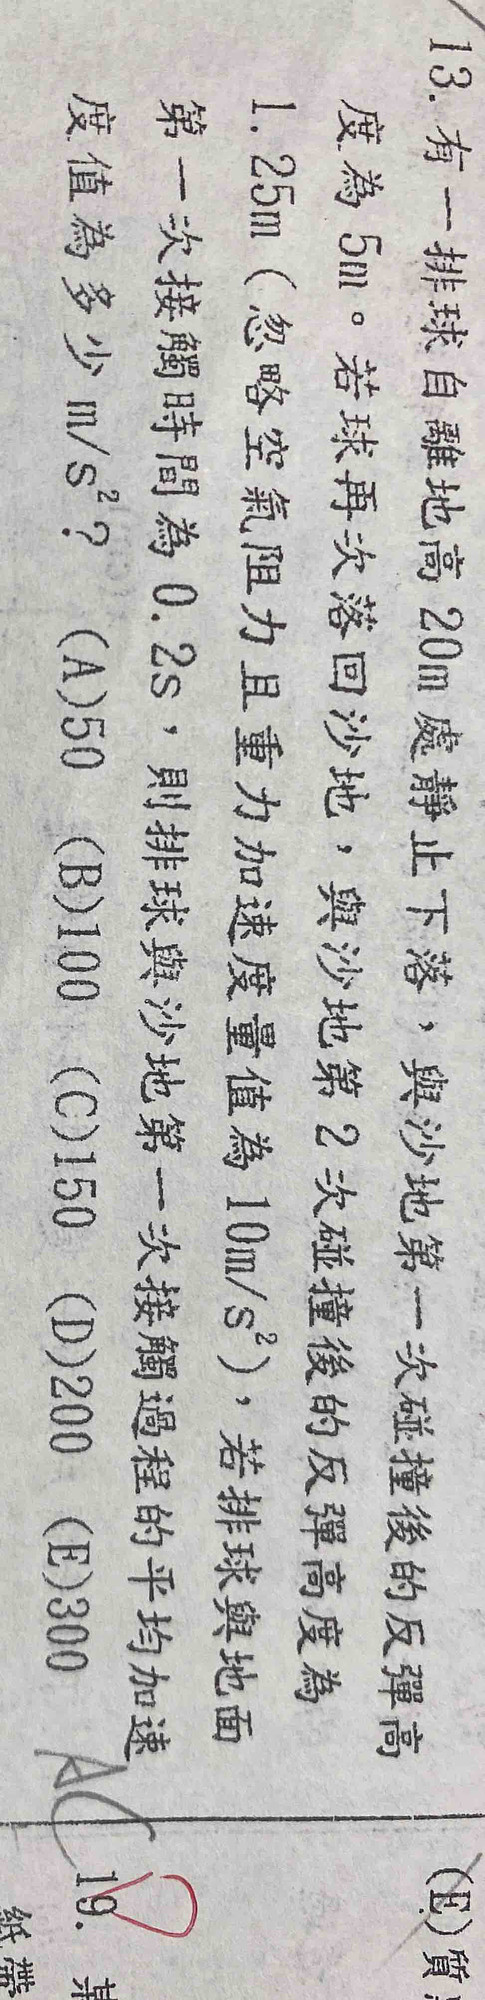 13. 有一排球自離地高 20m 處靜止下落，與沙地第一次碰撞後的反彈高
度為 5m。若球再次落回沙地，與沙地第 2 次碰撞後的反彈高度為
1.25m（忽略空氣阻力且重力加速度量值為 10m/s²），若排球與地面
第一次接觸時間為 0.2s，則排球與沙地第一次接觸過程的平均加速
度值為多少 m/s²？ (A)50 (B)100 (C)150 (D)200 (E)300
(E)質
AC
19. 某
紙帶